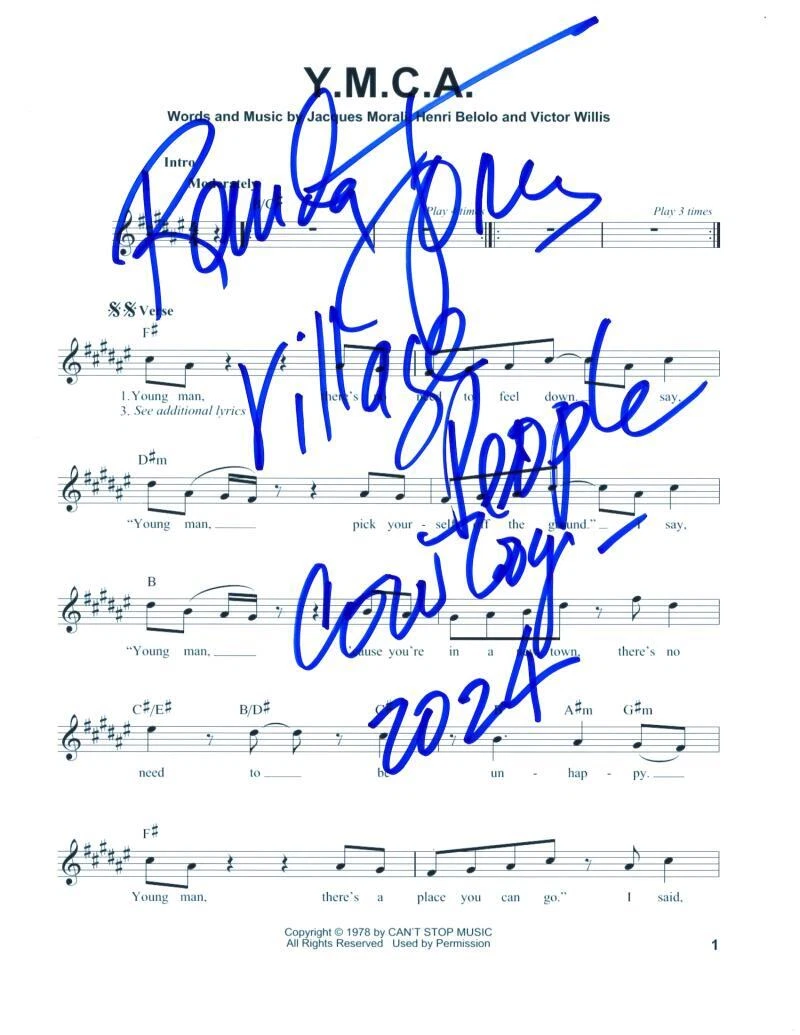 Y.M.C.A.
Words and Music by Jacques Morali, Henri Belolo and Victor Willis
Intro
Moderately
B/C#
Play 4 times
Play 3 times
Randy Jones
Village
People
Cowboy
2024
Verse
F#
1. Young man, there's no need to feel down. I say,
3. See additional lyrics
D#m
"Young man, pick your - self off the ground." I say,
B
"Young man, 'cause you're in a new town, there's no
C#/E# B/D# A#m G#m
need to be un - hap - py.
F#
Young man, there's a place you can go." I said,
Copyright © 1978 by CAN'T STOP MUSIC
All Rights Reserved Used by Permission
1